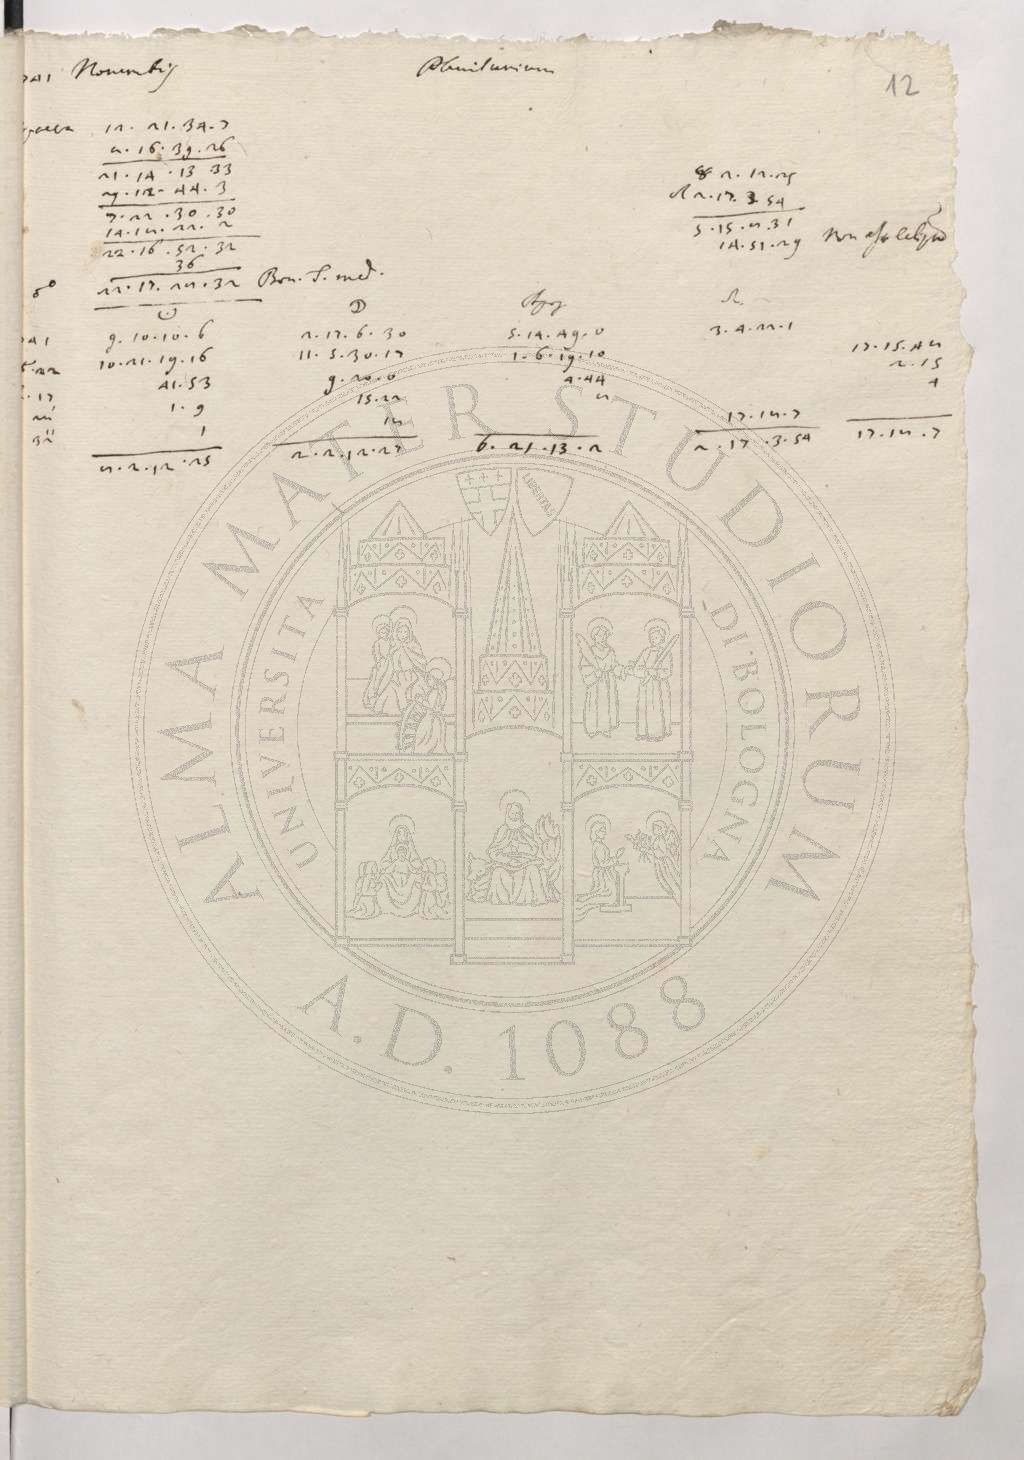 Novembris
Plenilunium
12
12 . 21 . 34 . 7
5 . 16 . 39 . 26
21 . 14 . 13 33
29 . 12 . 44 . 3
7 . 22 . 30 . 30
14 . 15 . 22 . 2
22 . 16 . 52 . 32
36
22 . 17 . 25 . 32
2 . 12 . 25
☊ 2 . 17 . 3 . 54
5 . 15 . 5 . 31
14 . 51 . 29
Non
☉ ☽ ☊
9 . 10 . 10 . 6 2 . 17 . 6 . 30 5 . 14 . 49 . 0 3 . 4 . 22 . 1
10 . 21 . 19 . 16 11 . 5 . 30 . 17 1 . 6 . 19 . 10 17 . 15 . 45
41 . 53 9 . 20 . 0 4 . 44 2 . 15
1 . 9 15 . 22 5 4
1 15 17 . 15 . 7
5 . 2 . 12 . 25 2 . 2 . 12 . 27 6 . 21 . 13 . 2 2 . 17 . 3 . 54 17 . 15 . 7
ALMA MATER STUDIORUM
UNIVERSITA DI BOLOGNA
LIBERTAS
A.D. 1088